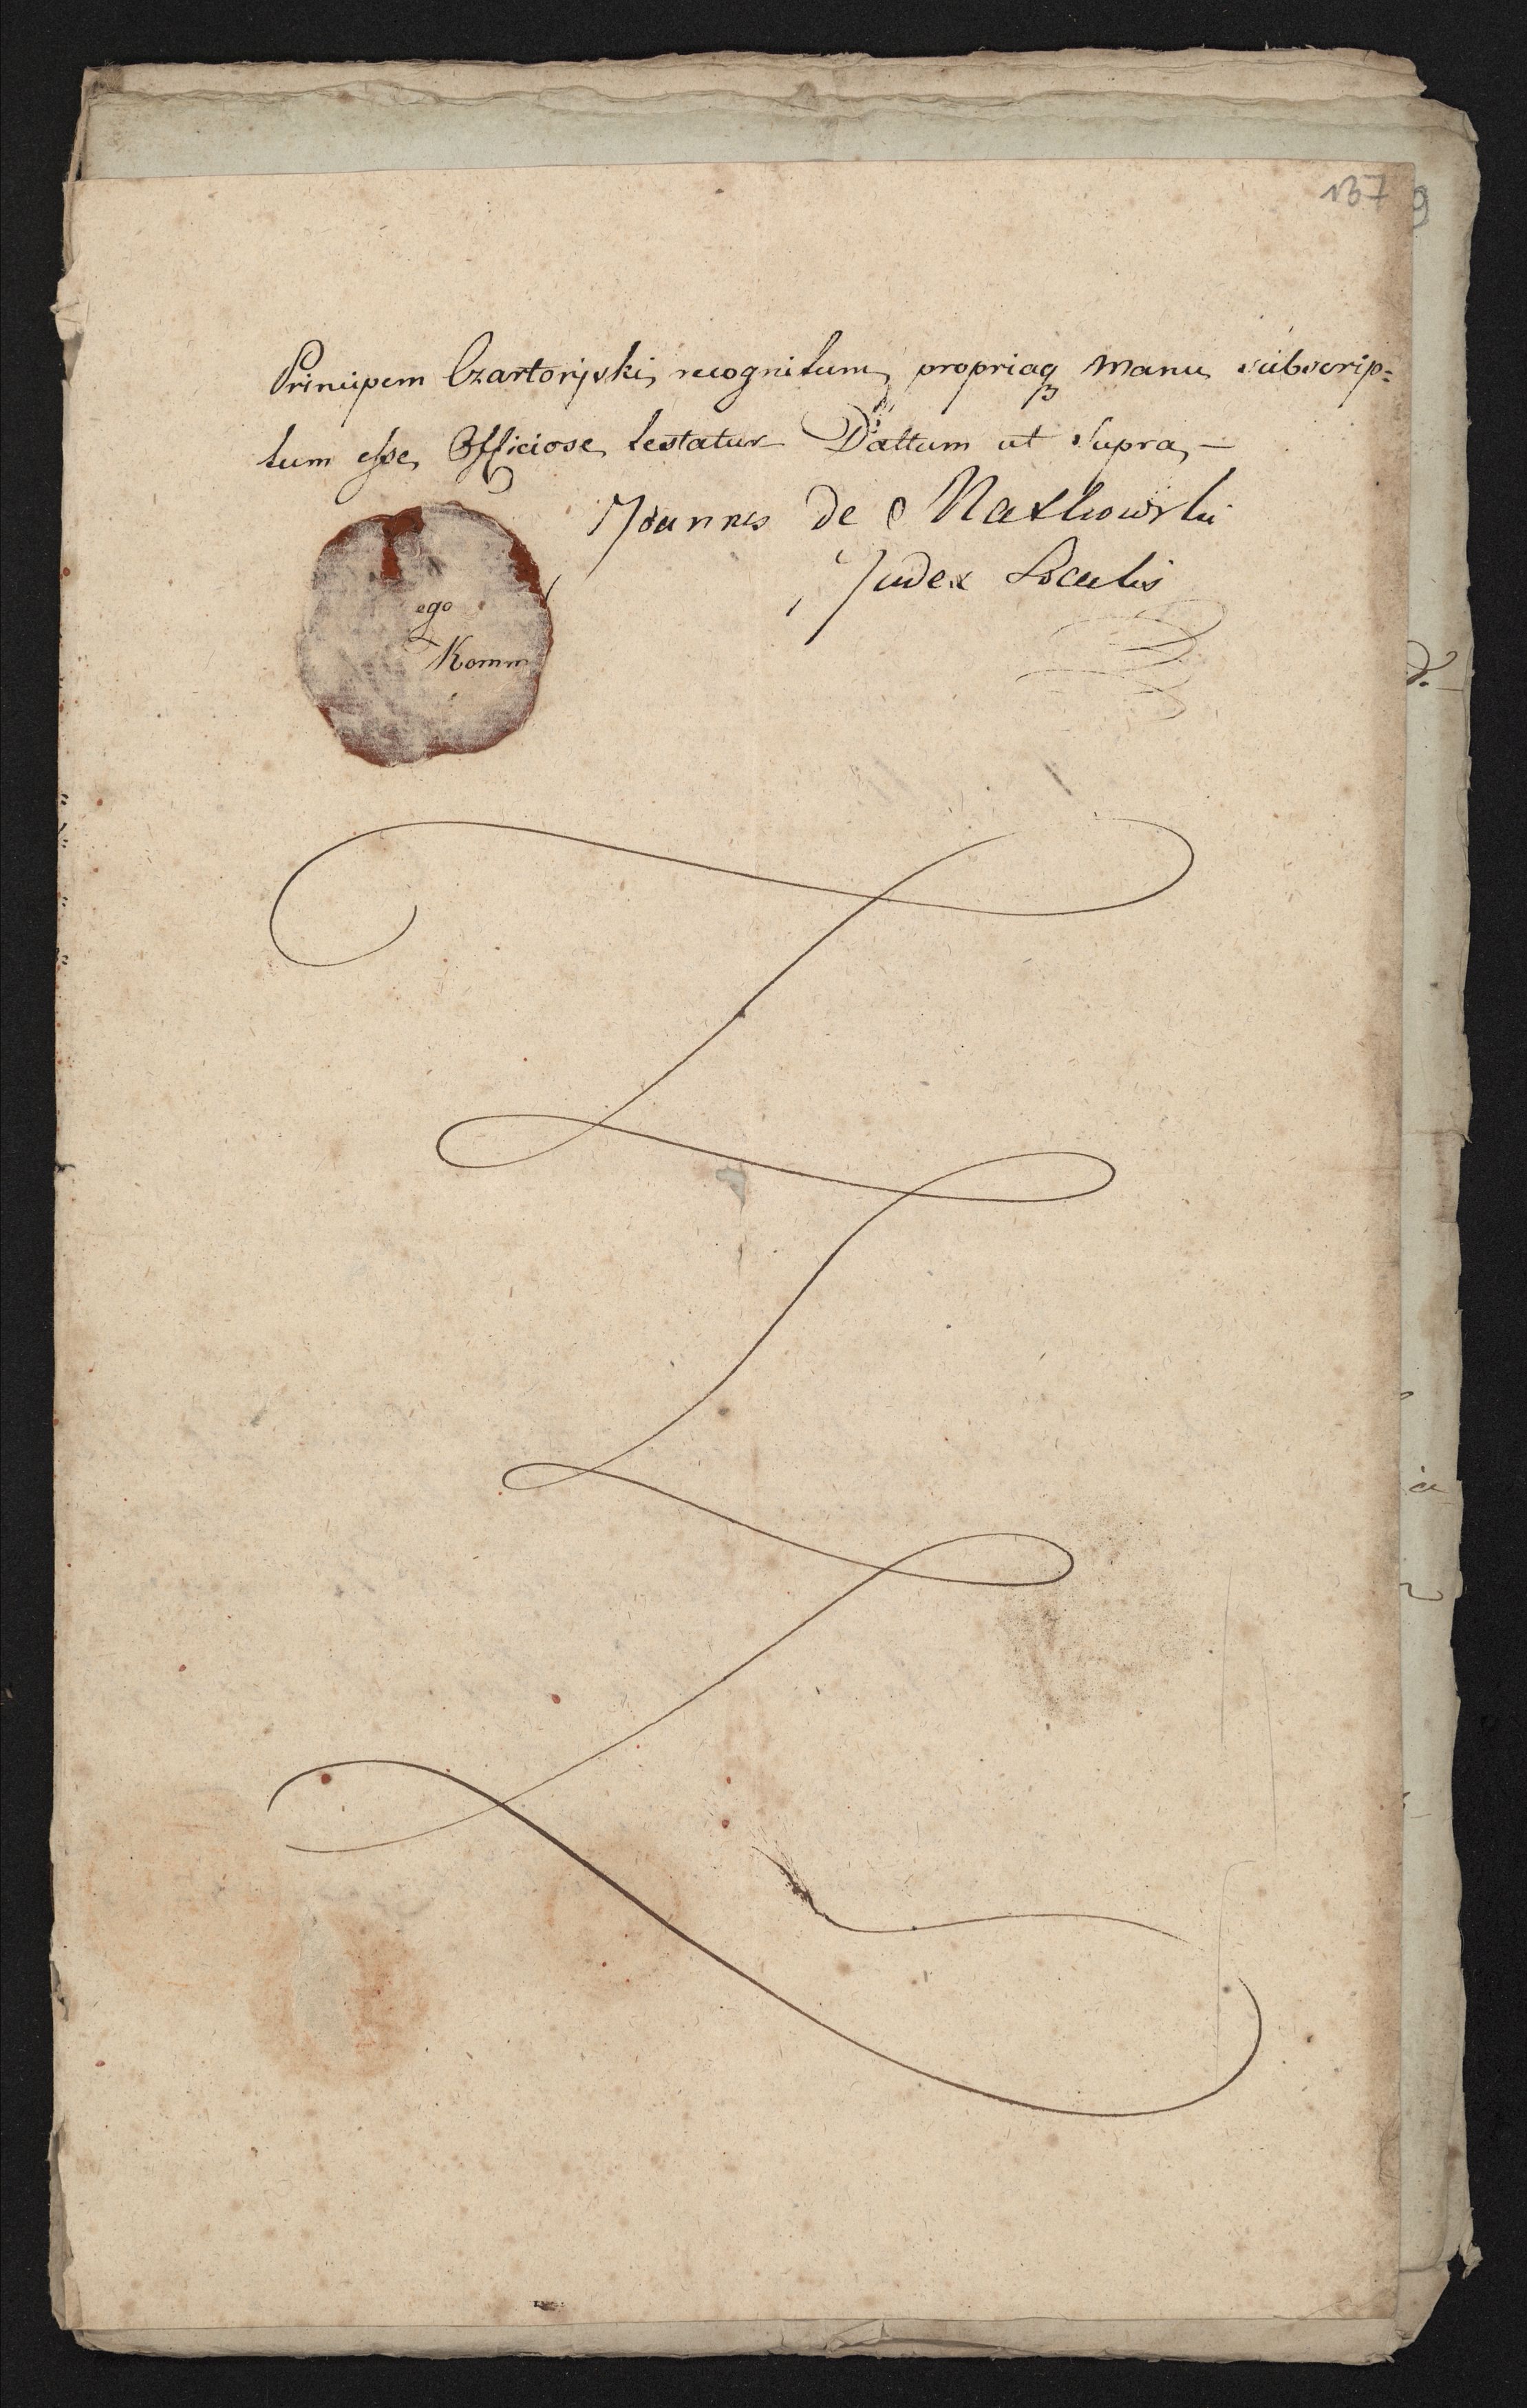 137
Principem Czartoryski, recognitum, propriaq manu subscrip=
tum esse, Officiose, testatur Dattum ut Supra, —
Joannes de
Judex Localis
ego
Komm